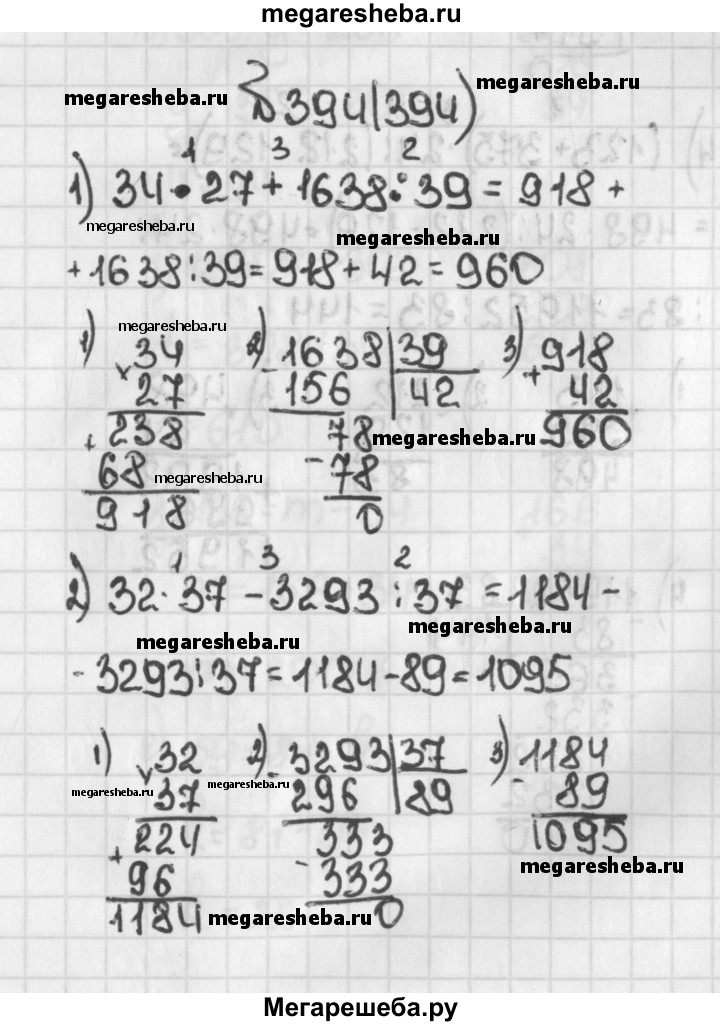 megaresheba.ru
megaresheba.ru
megaresheba.ru № 394(394)
1 3 2
1) 34 • 27 + 1638 : 39 = 918 +
megaresheba.ru megaresheba.ru
+ 1638 : 39 = 918 + 42 = 960
megaresheba.ru
1) × 34
27
+ 238
68
918
megaresheba.ru
2) - 1638 | 39
156 | 42
78
- 78
0
megaresheba.ru
3) + 918
42
960
1 3 2
2) 32 · 37 - 3293 : 37 = 1184 -
megaresheba.ru megaresheba.ru
- 3293 : 37 = 1184 - 89 = 1095
1) × 32
37
+ 224
96
1184
megaresheba.ru
2) - 3293 | 37
296 | 89
333
- 333
0
megaresheba.ru
megaresheba.ru
3) - 1184
89
1095
megaresheba.ru
Мегарешеба.ру